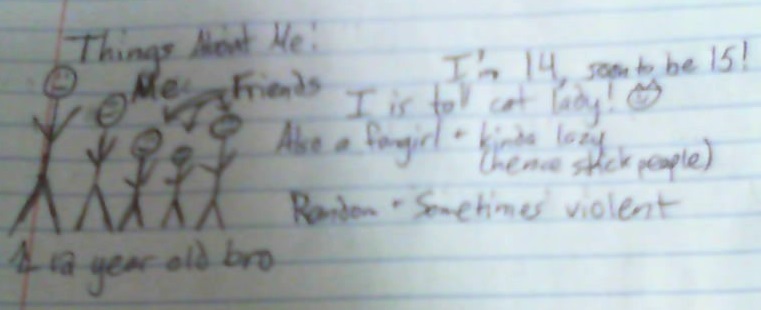 Things About Me!
I'm 14, soon to be 15!
Me Friends
I is tall cat lady!
Also a fangirl + kinda lazy
(hence stick people)
Random + Sometimes violent
12 year old bro